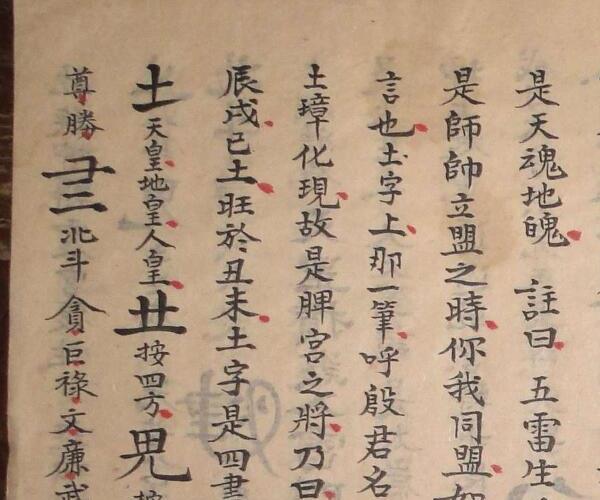 是天魂地魄 註曰五雷生
是師帥立盟之時你我同盟如
言也土字上那一筆呼殷君名
土璋化現故是脾宮之將乃曰
辰戌已土旺於丑未土字是四書
土天皇地皇人皇 按四方
尊勝 三北斗貪巨祿文廉武